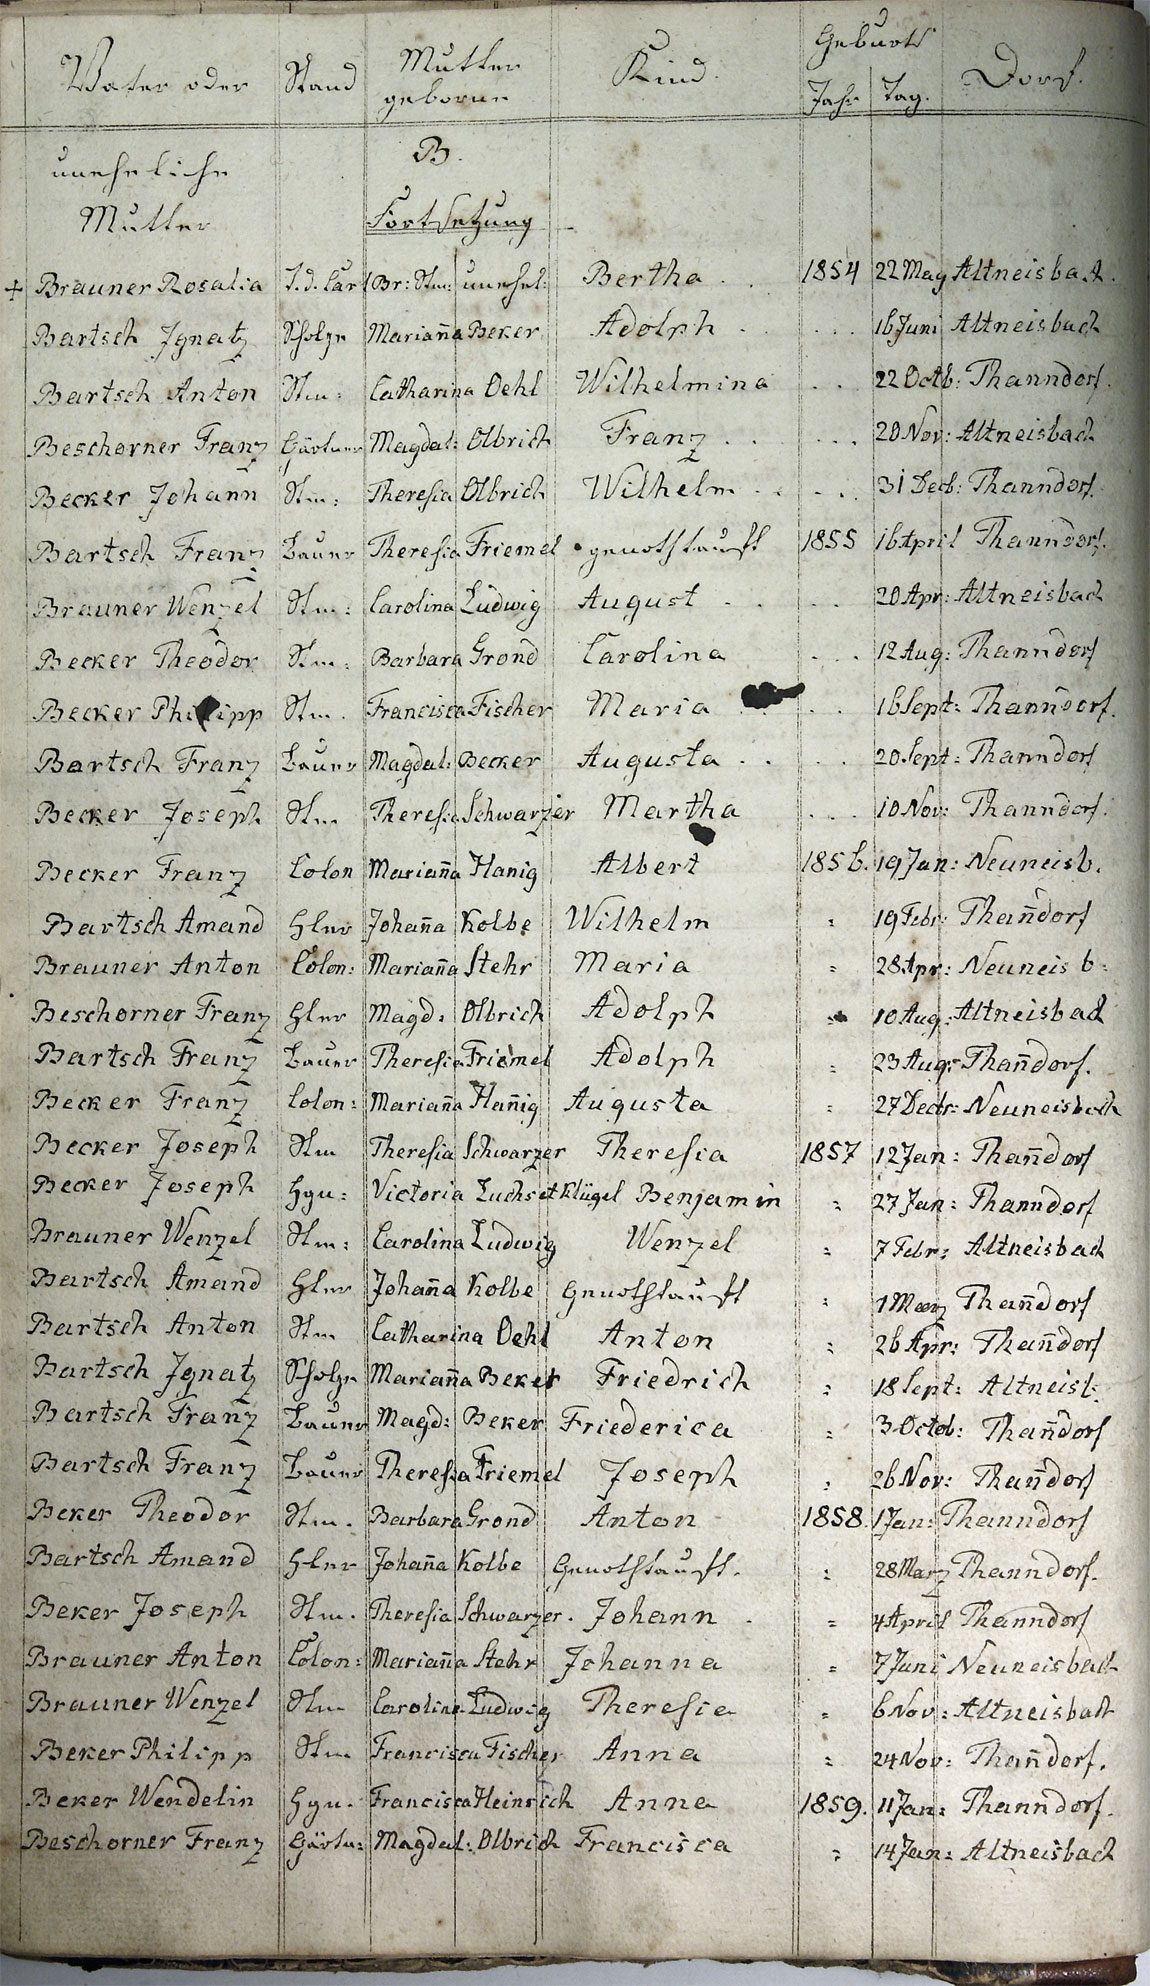 Vater oder Stand Mutter geborne Kind. Geburts Jahr Tag. Dorf.
uneheliche B.
Mutter Fortsetzung
+ Brauner Rosalia T. d. Carl Br: Stm: unehel: Bertha . . 1854 22 May Altneisbach.
Bartsch Jgnatz Scholze Mariaña Beker Adolph . . . . 16 Juni Altneisbach
Bartsch Anton Stm: Catharina Oehl Wilhelmina . . . 22 Octb: Thanndorf.
Beschorner Franz Gärtner Magdal: Olbrich Franz . . . . . 20 Nov: Altneisbach
Becker Johann Stm: Theresia Olbrich Wilhelm . . . . . 31 Decb: Thanndorf.
Bartsch Franz Bauer Theresia Friemel genothtauft 1855 16 April Thanndorf.
Brauner Wenzel Stm: Carolina Ludwig August . . . . 20 Apr: Altneisbach
Becker Theodor Stm: Barbara Grond Carolina . . . 12 Aug: Thanndorf
Becker Philipp Stm. Francisca Fischer Maria . . . . 16 Sept: Thanndorf.
Bartsch Franz Bauer Magdal: Becker Augusta . . . . 20 Sept: Thanndorf
Becker Joseph Stm Theresia Schwarzer Martha . . . 10 Nov: Thanndorf.
Becker Franz Colon Mariaña Hanig Albert 1856. 19 Jan: Neuneisb.
Bartsch Amand Hler Johaña Kolbe Wilhelm : 19 Febr: Thañdorf
Brauner Anton Colon: Mariaña Stehr Maria : 28 Apr: Neuneisb:
Beschorner Franz Hler Magd: Olbrich Adolph : 10 Aug: Altneisbach
Bartsch Franz Bauer Theresia Friemel Adolph : 23 Aug: Thañdorf.
Becker Franz Colon: Mariaña Hañig Augusta : 27 Decbr: Neuneisbach
Becker Joseph Stm Theresia Schwarzer Theresia 1857 12 Jan: Thañdorf
Becker Joseph Hgu: Victoria Luchs et Klügel Benjamin : 27 Jan: Thanndorf
Brauner Wenzel Stm: Carolina Ludwig Wenzel : 7 Febr: Altneisbach
Bartsch Amand Hler Johaña Kolbe Genothtauft : 1 Maerz Thañdorf
Bartsch Anton Stm Catharina Oehl Anton : 26 Apr: Thañdorf
Bartsch Jgnatz Scholze Mariaña Beker Friedrich : 18 Sept: Altneisb:
Bartsch Franz Bauer Magd: Beker Friederica : 3 Octob: Thañdorf
Bartsch Franz Bauer Theresia Friemel Joseph : 26 Nov: Thañdorf
Beker Theodor Stm. Barbara Grond Anton 1858. 1 Jan: Thanndorf
Bartsch Amand Hler Johaña Kolbe Genothtauft. : 28 Marz Thanndorf.
Beker Joseph Stm. Theresia Schwarzer. Johann . : 4 April Thanndorf
Brauner Anton Colon: Mariaña Stehr Johanna : 7 Juni Neuneisbach
Brauner Wenzel Stm Carolina Ludwig Theresia : 6 Nov: Altneisbach
Beker Philipp Stm Francisca Fischer Anna : 24 Nov: Thañdorf.
Beker Wendelin Hgu. Francisca Heinrich Anna 1859. 11 Jan: Thanndorf.
Beschorner Franz Gärtn: Magdal: Olbrich Francisca : 14 Jan: Altneisbach